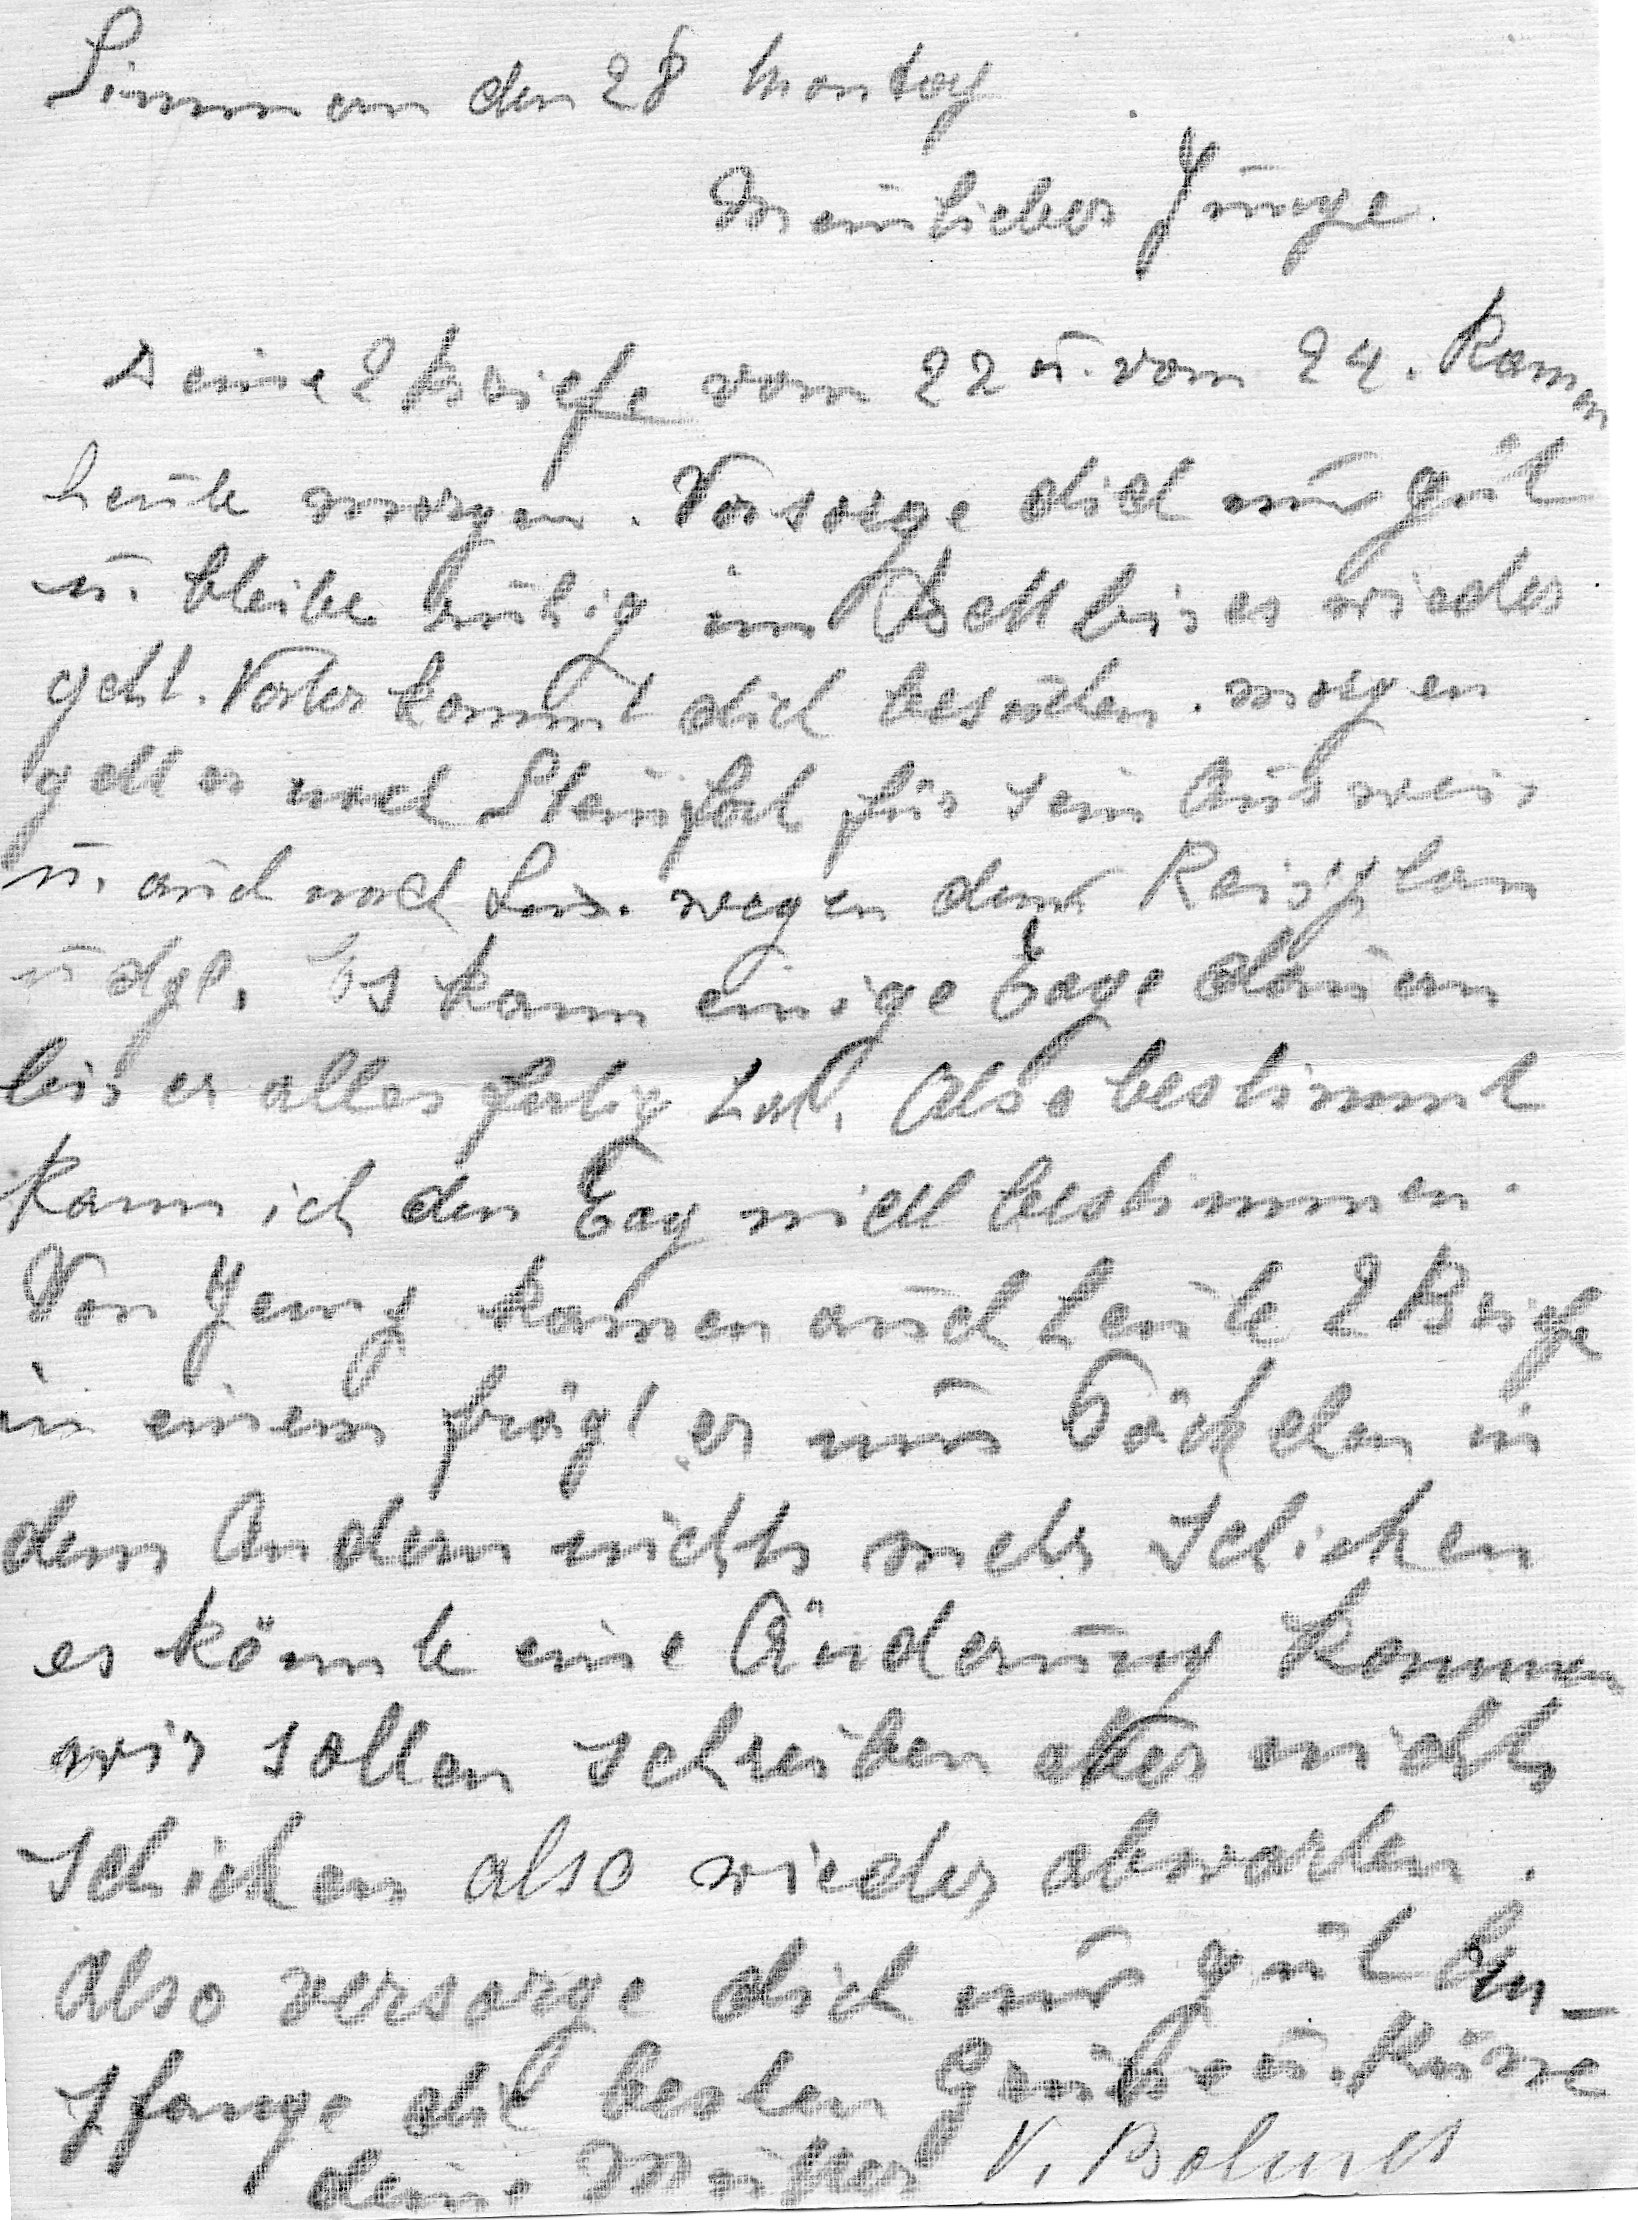 Simmern den 28 Montag
Mein lieber Junge.
Deine 2 Briefe vom 22 u. vom 24. kamen
heute morgen. Versorge dich nur gut
u. bleibe ruhig im Bett bis es wieder
geht. Vater kommt dich besuchen. morgen
geht er nach für sein Ausweis
u. auch nach wegen dem
u dgl. Es kann einige Tage dauern
bis er alles fertig hat. Also bestimmt
kann ich den Tag nicht bestimmen.
Von kamen auch heute 2 Briefe
in einem frägt er um Päckchen in
dem Andern nichts mehr schicken
es könnte eine Änderung kommen
wir sollen schreiben aber nichts
schicken also wieder abwarten.
Also versorge dich nur gut Em-
pfange die besten Grüße u. Küsse
deine Mutter V.